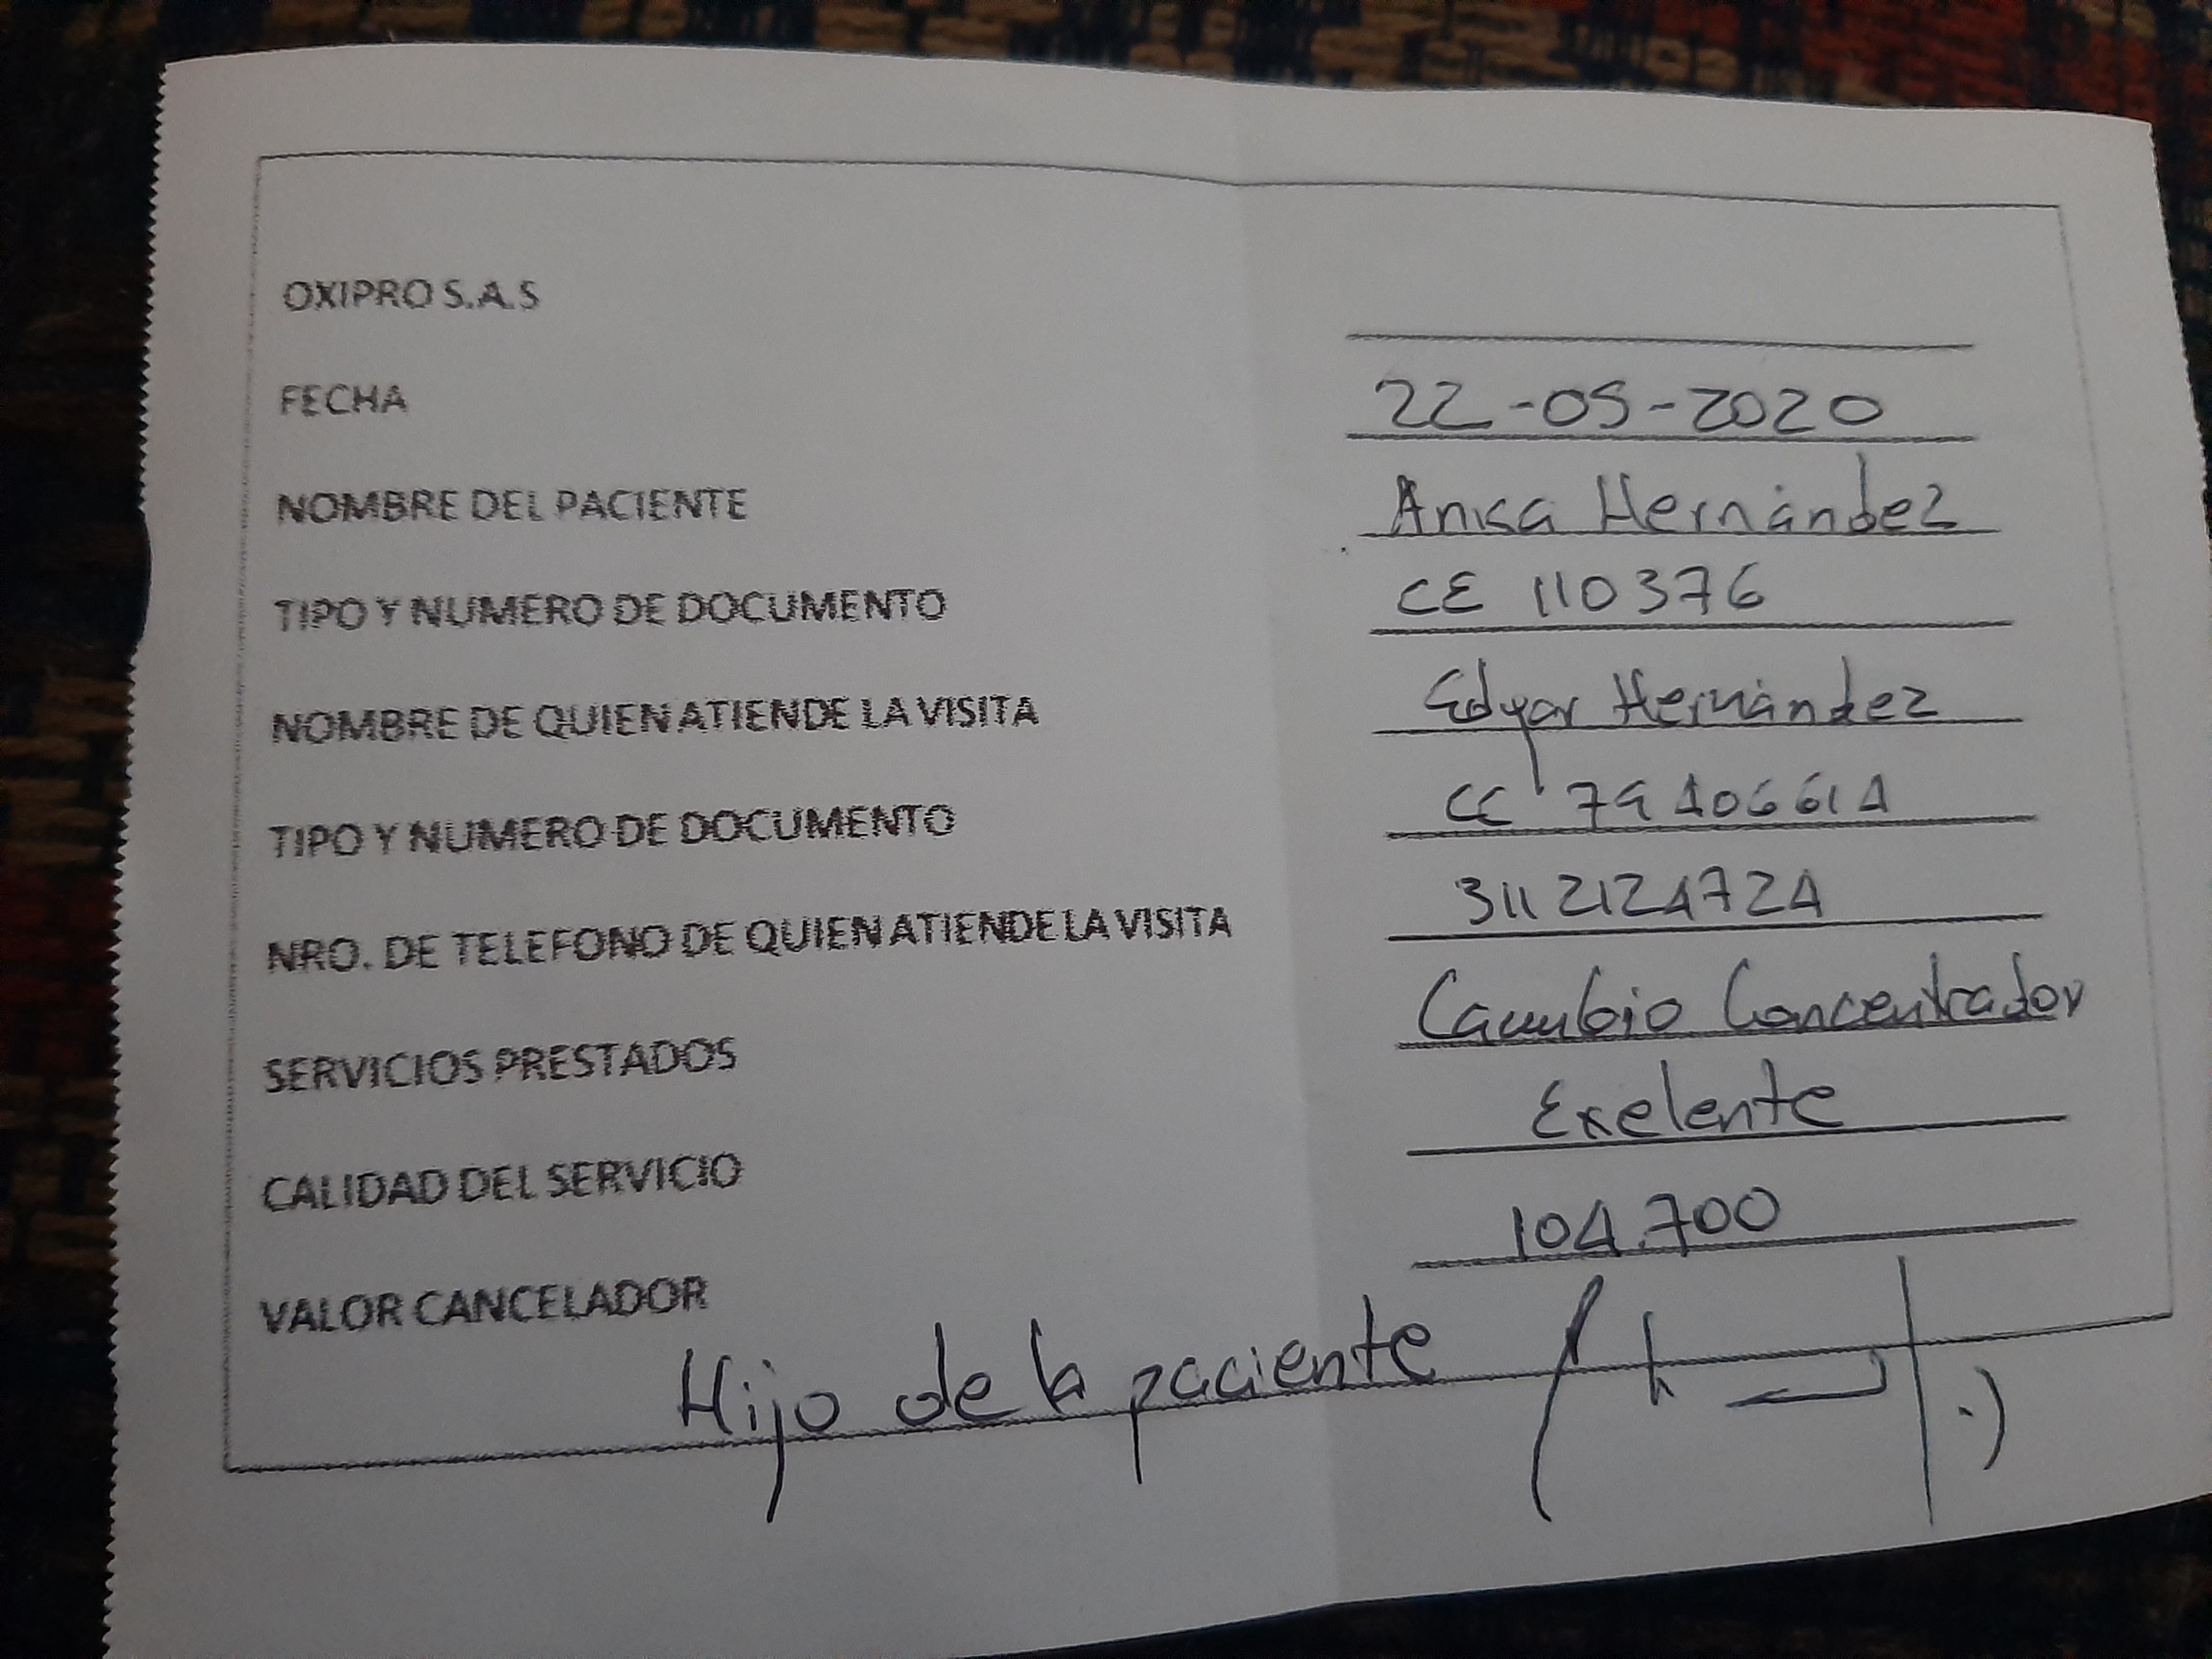 OXIPRO S.A.S
FECHA 22-05-2020
NOMBRE DEL PACIENTE Anisa Hernández
TIPO Y NUMERO DE DOCUMENTO CE 110376
NOMBRE DE QUIEN ATIENDE LA VISITA Edgar Hernández
TIPO Y NUMERO DE DOCUMENTO CC 79406614
NRO. DE TELEFONO DE QUIEN ATIENDE LA VISITA 3112124724
SERVICIOS PRESTADOS Cambio Concentrador
CALIDAD DEL SERVICIO Exelente
VALOR CANCELADOR 104.700
Hijo de la paciente